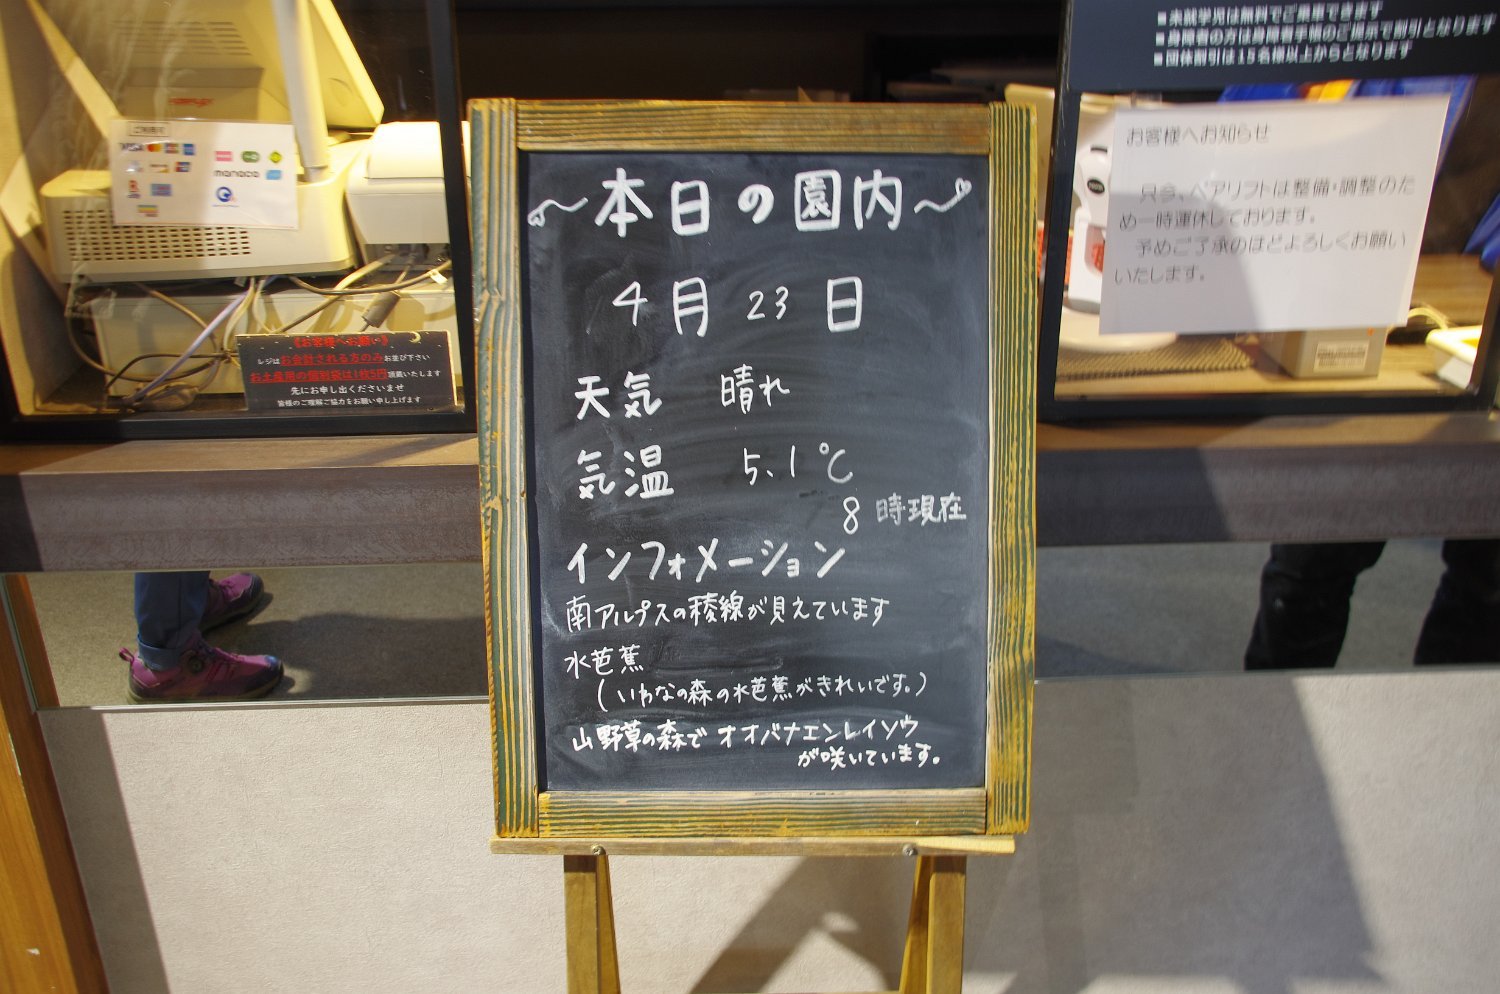 ～本日の園内～
4月23日
天気 晴れ
気温 5.1℃
8時現在
インフォメーション
南アルプスの稜線が見えています
水芭蕉
(いわなの森の水芭蕉がきれいです。)
山野草の森でオオバナエンレイソウ
が咲いています。
■未就学児は無料でご乗車できます
■身障者の方は身障者手帳のご提示で割引となります
■団体割引は15名様以上からとなります
お客様へお知らせ
只今、ペアリフトは整備・調整のた
め一時運休しております。
予めご了承のほどよろしくお願い
いたします。
VISA
manaca
《お客様へお願い》
レジはお会計される方のみお並び下さい
お土産用の個別袋は1枚5円頂戴いたします
先にお申し出くださいませ
皆様のご理解ご協力をお願い申し上げます